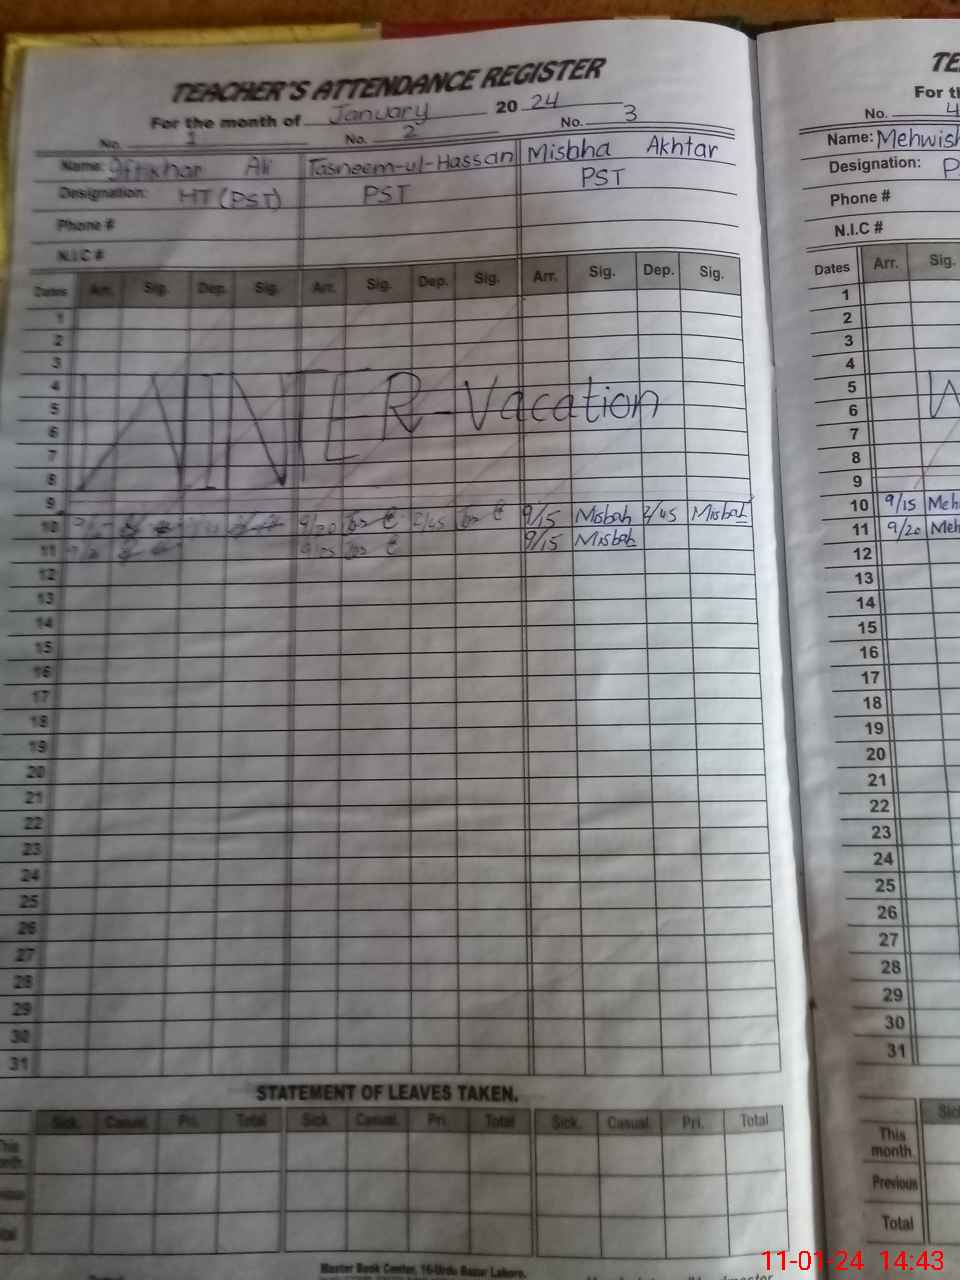 TEACHER'S ATTENDANCE REGISTER
For the month of January 20 24
No. 1 No. 2 No. 3
Name: Iftikhar Ali Tasneem-ul-Hassan Misbha Akhtar
Designation: HT (PST) PST PST
Phone #
N.I.C #
Dates Arr. Sig. Dep. Sig. Arr. Sig. Dep. Sig. Arr. Sig. Dep. Sig.
1
2
3
4
5
6
7
8
WINTER-Vacation
9
10 9/20 2/45 9/15 Misbah 2/45 Misbah
11 9/15 Misbah
12
13
14
15
16
17
18
19
20
21
22
23
24
25
26
27
28
29
30
31
STATEMENT OF LEAVES TAKEN.
Sick. Casual. Pri. Total Sick. Casual. Pri. Total Sick. Casual. Pri. Total
This
Master Book Center, 16-Urdu Bazar Lahore.
TE
For th
No. 4
Name: Mehwish
Designation: P
Phone #
N.I.C #
Dates Arr. Sig.
1
2
3
4
5
6
7
8
9
10 9/15 Meh
11 9/20 Meh
12
13
14
15
16
17
18
19
20
21
22
23
24
25
26
27
28
29
30
31
Sic
This
month.
Previous
Total
11-01-24 14:43